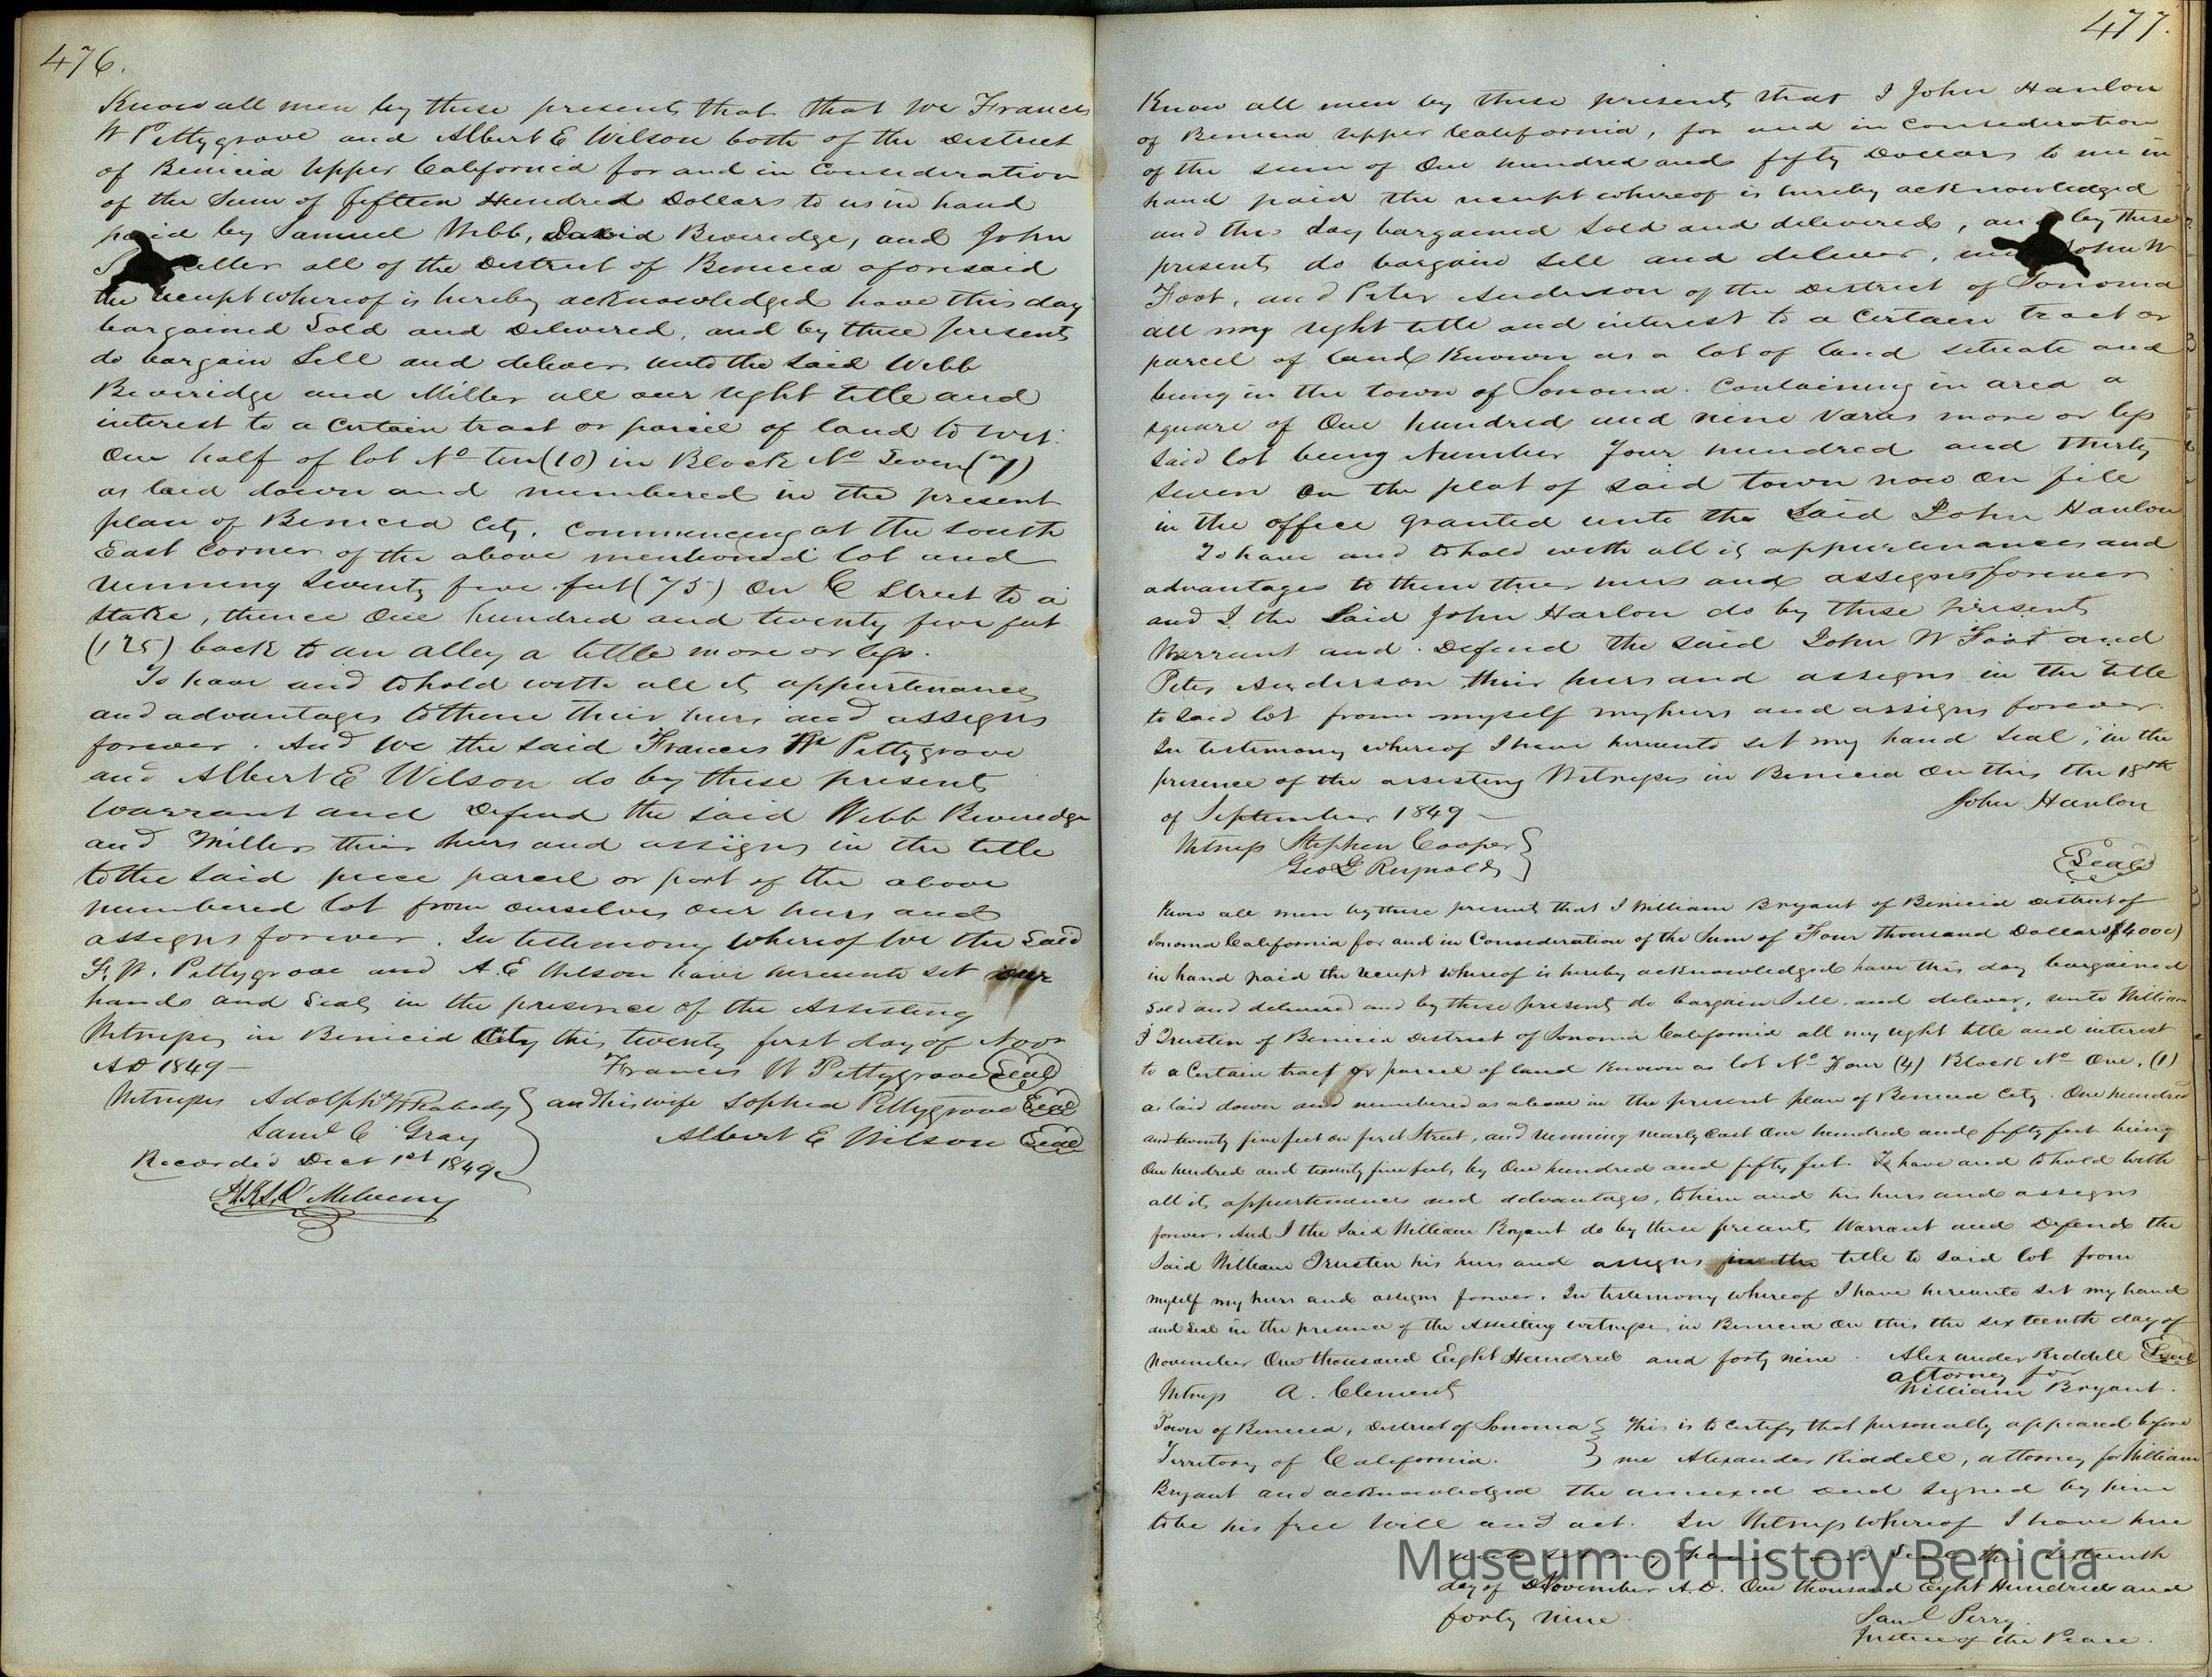 476.
Know all men by these presents that that we Frances
W Pettygrove and Albert E Wilson both of the District
of Benicia Upper California for and in Consideration
of the Sum of fifteen Hundred Dollars to us in hand
paid by Samuel Webb, David Beveredge, and John
all of the District of Benicia aforesaid
the receipt whereof is hereby acknowledged have this day
bargained Sold and Delivered, and by these presents
do bargain Sell and deliver unto the Said Webb
Beveridge and Miller all our right title and
interest to a Certain tract or parcel of land to wit.
One half of lot No ten (10) in Block No Seven (7)
as laid down and numbered in the present
plan of Benicia City. Commencing at the South
East Corner of the above mentioned lot and
running Seventy five feet (75) on C Street to a
Stake, thence One hundred and twenty five feet
(125) back to an alley a little more or less.
To have and to hold with all its appurtenances
and advantages to them their heirs and assigns
forever. And we the said Frances W Pettygrove
and Albert E Wilson do by these presents
Warrant and Defend the said Webb Beveredge
and Miller their heirs and assigns in the title
to the Said piece parcel or part of the above
numbered lot from ourselves our heirs and
assigns forever. In testimony whereof we the Said
F. W. Pettygrove and A. E Wilson have hereunto set our
hands and Seals in the presence of the Assisting
Witnesses in Benicia City this twenty first day of Novr
AD 1849
Francis W Pettygrove Seal
Witnesses Adolphs Peabody and his wife Sophia Pettygrove Seal
Saml C Gray
Albert E Wilson Seal
Recorded Dect 1st 1849
477.
Know all men by these presents that I John Hanlon
of Benicia Upper California, for and in Consideration
of the sum of One hundred and fifty Dollars to me in
hand paid the receipt whereof is hereby acknowledged
and this day bargained Sold and delivered, and by these
presents do bargain Sell and deliver, John W
Foot, and Peter Anderson of the District of Sonoma
all my right title and interest to a Certain tract or
parcel of land Known as a lot of land situate and
being in the town of Sonoma. Containing in area a
square of One hundred and nine Varas more or less
Said lot being Number Four hundred and thirty
Seven on the plat of said town now on file
in the office granted unto the Said John Hanlon
To have and to hold with all its appurtenances and
advantages to them their heirs and assigns forever
and I the Said John Harlon do by these presents
Warrant and Defend the said John W Foot and
Peter Anderson their heirs and assigns in the title
to Said lot from myself my heirs and assigns forever.
In testimony whereof I have hereunto set my hand Seal, in the
presence of the assisting Witnesses in Benicia on this the 18th
of September 1849
John Hanlon
Witness Stephen Cooper
Geo G Reynolds
Seal
Know all men by these presents that I William Bryant of Benicia District of
Sonoma California for and in Consideration of the Sum of Four thousand Dollars ($4000)
in hand paid the receipt whereof is hereby acknowledged have this day bargained
sold and delivered and by these presents do bargain Sell and deliver, unto William
J Trusten of Benicia District of Sonoma California all my right title and interest
to a Certain tract or parcel of land Known as lot No Four (4) Block No One, (1)
as laid down and numbered as above in the present plan of Benicia City. One hundred
and twenty five feet on first Street, and running nearly East One hundred and fifty feet being
One hundred and twenty five feet, by One hundred and fifty feet. To have and to hold with
all its appurtenances and advantages, to him and his heirs and assigns
forever. And I the Said William Bryant do by these presents Warrant and Defend the
Said William Trusten his heirs and assigns in the title to said lot from
myself my heirs and assigns forever. In testimony whereof I have hereunto set my hand
and Seal in the presence of the Assisting witnesses in Benicia on this the sixteenth day of
November One thousand Eight Hundred and forty nine. Alexander Riddell Seal
attorney for
Witness A. Clements
William Bryant.
Town of Benicia, District of Sonoma This is to Certify that personally appeared before
Territory of California. me Alexander Riddell, attorney for William
Bryant and acknowledged the annexed deed signed by him
to be his free Will and act. In Witness Whereof I have here
unto set my hand and Seal this sixteenth
day of November A.D. One thousand Eight Hundred and
forty nine.
Saml Perry.
Justice of the Peace.
Museum of History Benicia